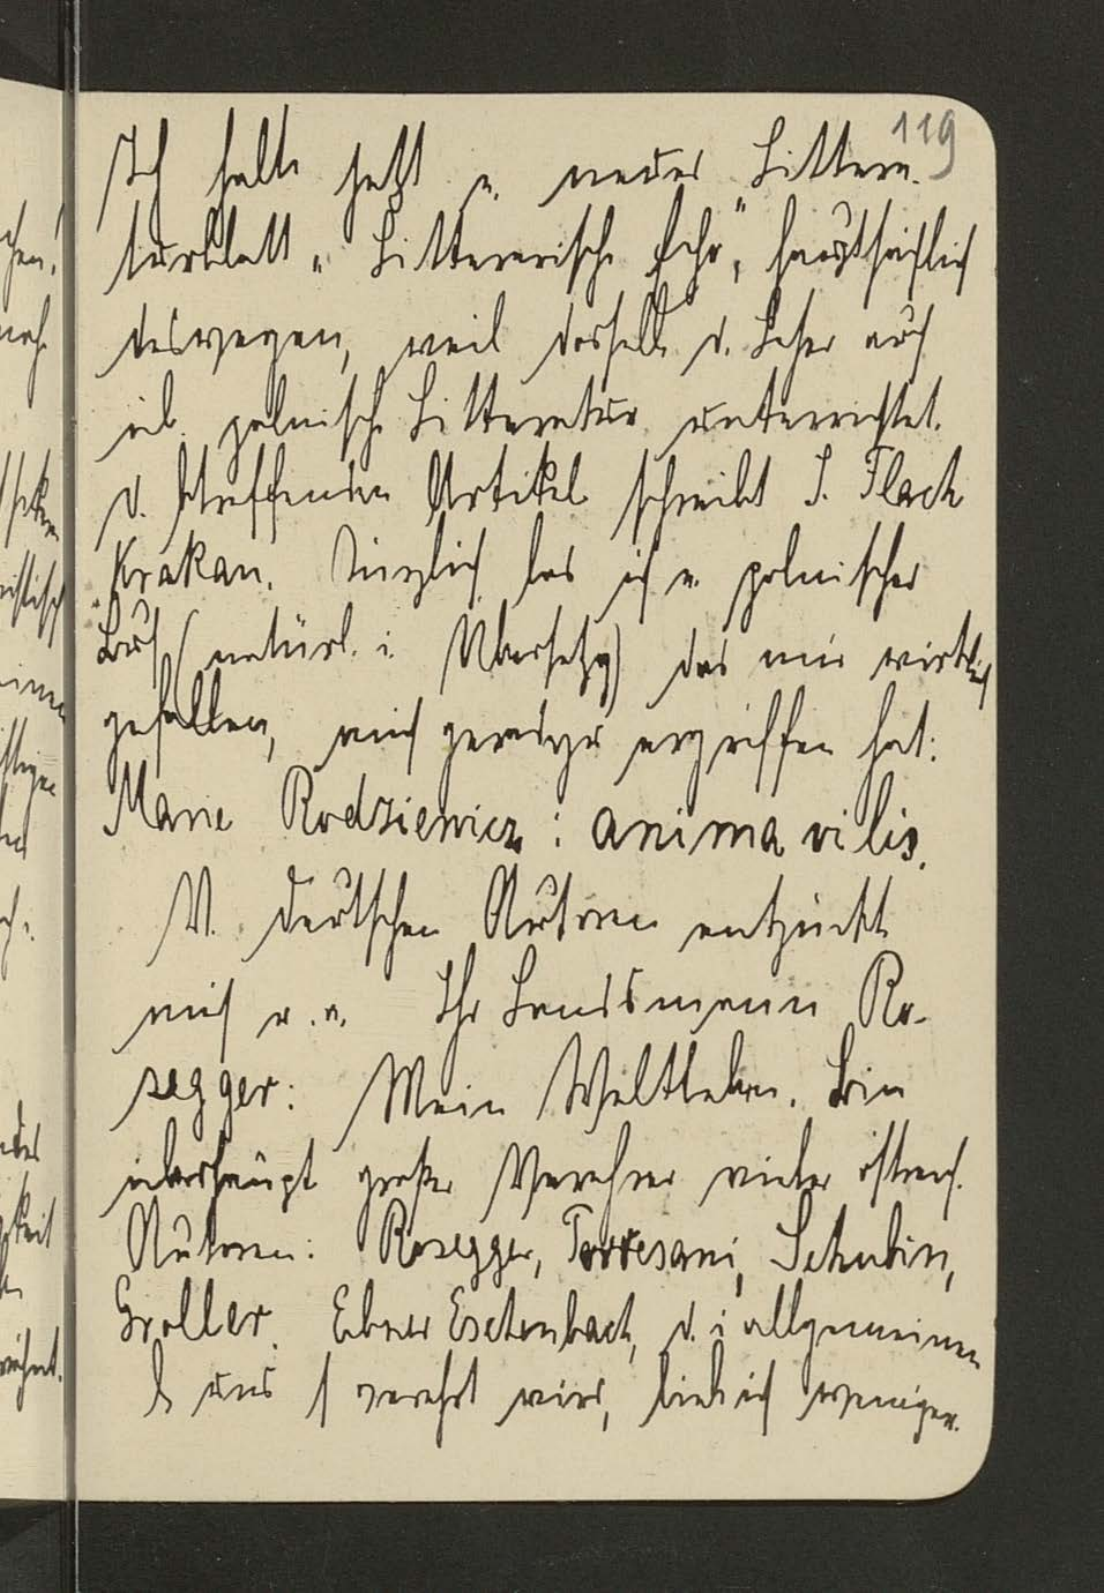 119
Ich halte jetzt e. neues Littera-
turblatt „Litterarische Echo", hauptsächlich
deswegen, weil dasselbe d. Leser auch
üb. polnische Litteratur unterrichtet.
D. betreffenden Artikel schreibt J. Flach
Krakau. Kürzlich las ich e. polnisches
Buch (natürl. i. Übersetzg) das mir wirklich
gefallen, mich geradezu ergriffen hat:
Marie Rodziewicz: anima vilis.
V. deutschen Autoren entzückt
mich u. a. Ihr Landsmann Ro-
segger: Mein Weltleben. Bin
überhaupt großer Verehrer vieler östreich.
Autoren: Rosegger, Torresani, Schubin,
Groller. Ebner Eschenbach, d. i allgemeinen
b uns s verehrt wird, liebe ich weniger.